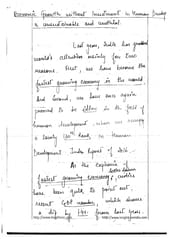 Economic Growth without Investment in Human
is Unsustainable and unethical.
Last year, India has grabbed
world's attention mainly for two
reasons. First, we have become the
fastest growing economy in the world
And Second, we have once again
proved to be in the field of
human development, where we occupy
a lowly rank, in Human
Development Index Report of
At the euphoria of
fastest growing economy, critics
have been quick to point out,
recent GDP number, which shows
a dip by from last year.